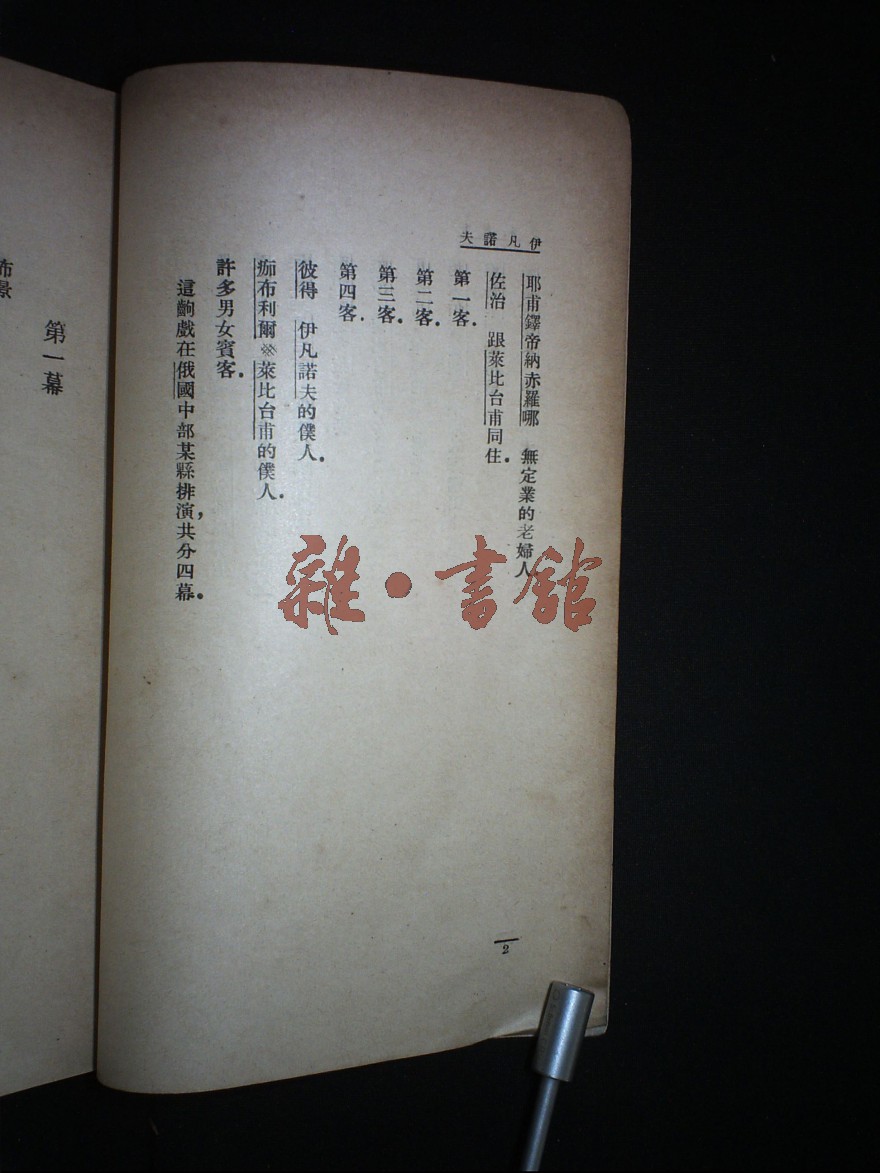 伊凡諾夫
耶甫鐸帝納赤羅哪　無定業的老婦人
佐治　跟萊比台甫同住.
第一客.
第二客.
第三客.
第四客.
彼得　伊凡諾夫的僕人.
痂布利爾※萊比台甫的僕人.
許多男女賓客.
這齣戲在俄國中部某縣排演,共分四幕.
2
第一幕
布景
雜·書館